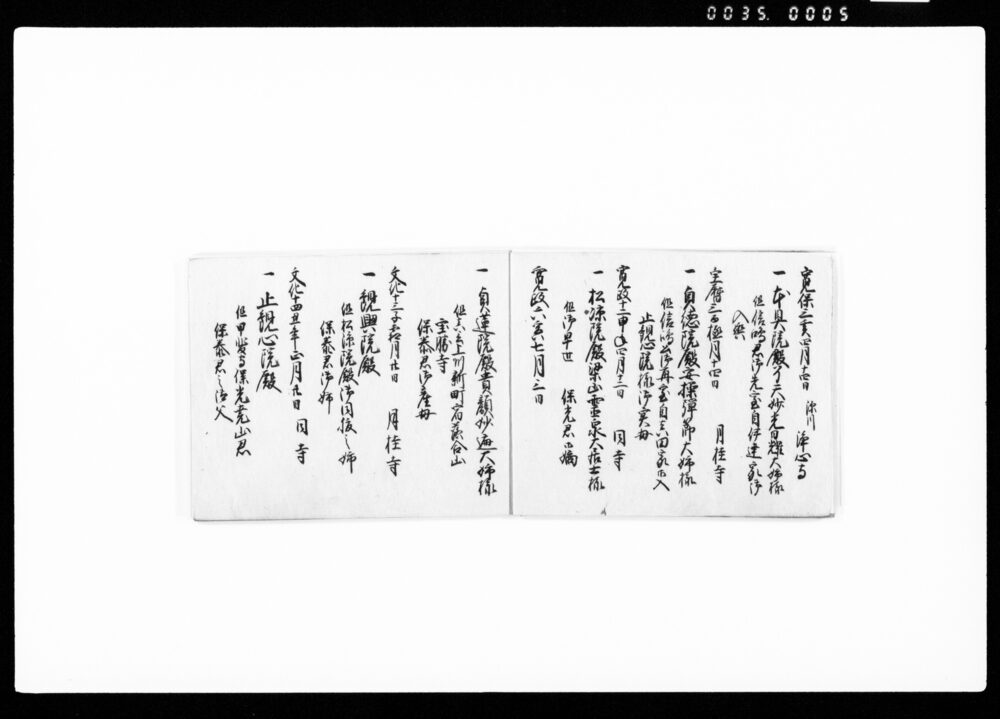 0035. 0005
寛保三亥四月十四日 深川 浄心寺
一 本具院殿了天妙光日耀大姉様
但信鴻君御先室自伊達家御
入輿
宝暦三酉極月十四日 月桂寺
一 貞徳院殿安操弾節大姉様
但信鴻公御再室自真田家正入
止観心院様御実母
寛政十二申年四月十二日 同寺
一 松凉院殿梁山霊泉大居士様
但御早世 保光君正嫡
寛政六寅七月三日
一 貞蓮院殿貴顔妙遍大姉様
新町
宝勝寺
保泰君御産母
文化十三子 月廿日 月桂寺
一 観興院殿
但松凉院殿御同腹之姉
保泰君御姉
文化十四丑年正月廿日 同寺
一 止観心院殿
但甲斐守保光堯山君
保泰君之御父